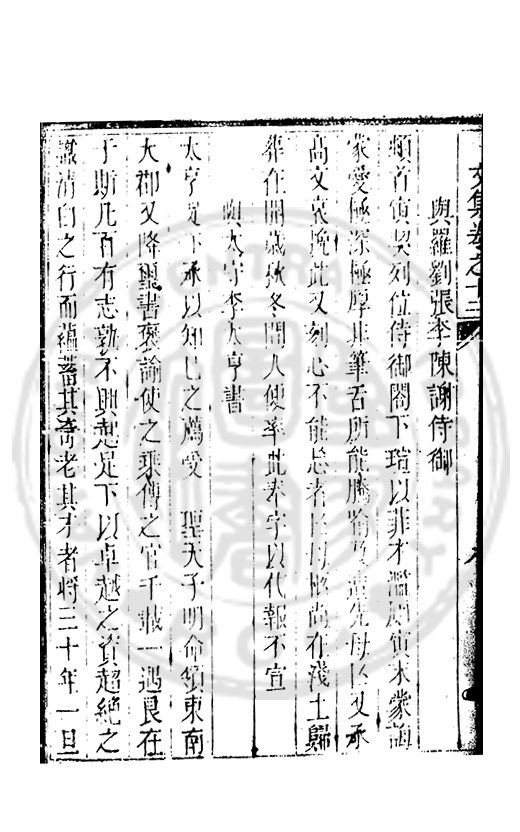 文集卷之十三
與羅劉張李陳謝侍御
頓首寅契列位侍御閣下瑄以菲才濫廁寅末蒙諸
家愛極深極厚非筆舌所能騰喻及喪先母又承
高文哀挽此又刻心不能忘者 母柩尚在淺土歸
葬在開歲秋冬間人使率此奉字以代報不宣
與太守李太亨書
太亨足下承以知己之薦受 聖天子明命領東南
大郡又降璽書褒諭使之乘傳之官千載一遇良在
于斯凡有志孰不興起足下以卓越之資超絕之
識清白之行而蘊蓄其奇老其才者將三十年一旦